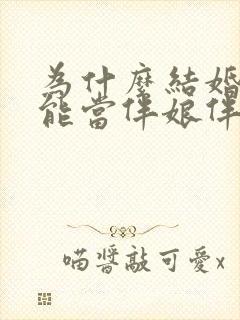 為什麼結婚
能當伴娘伴
喵醬敲可愛x